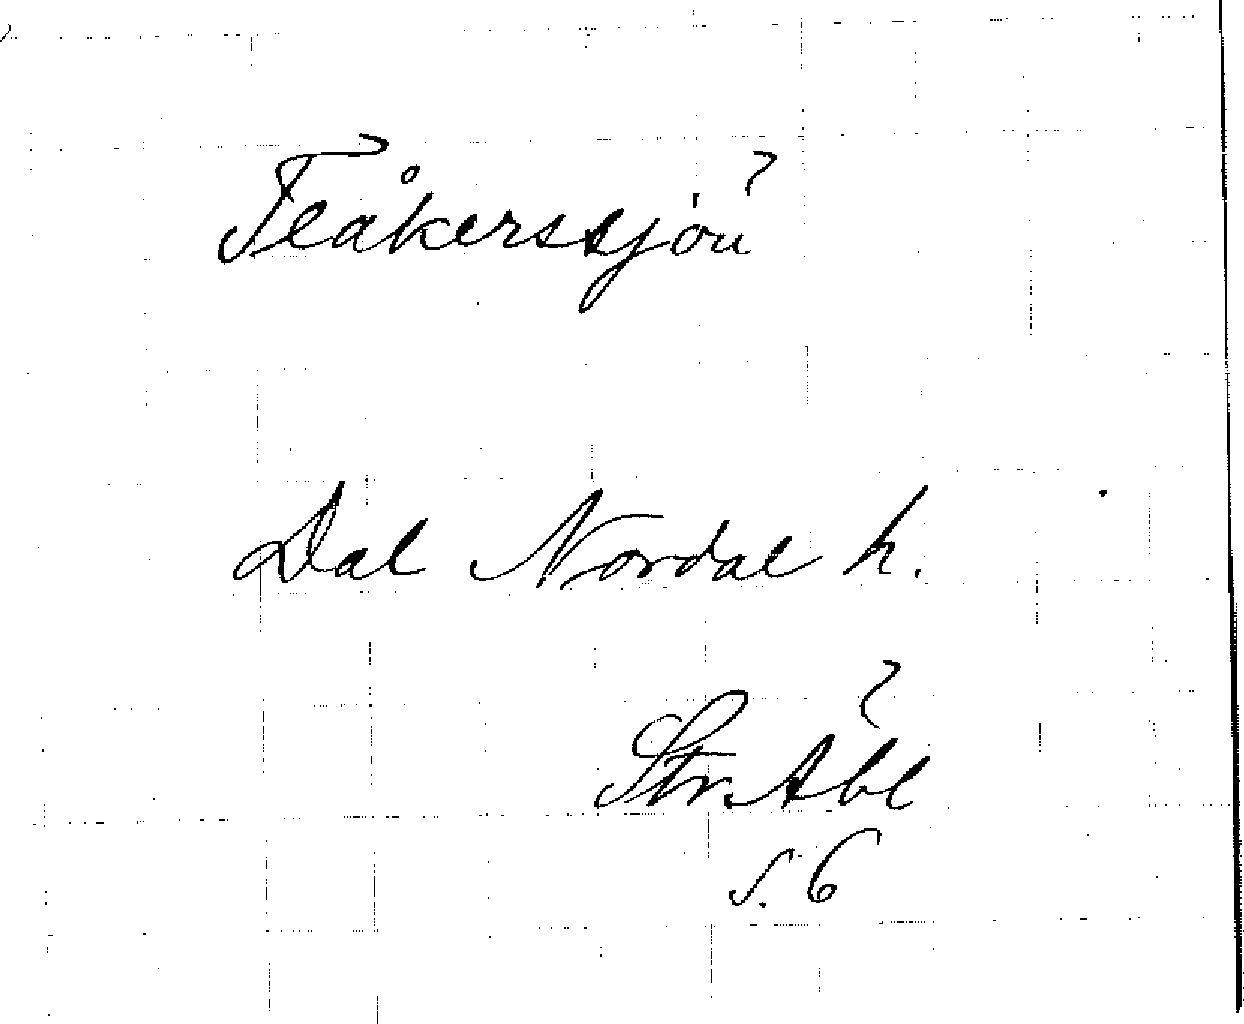 Teåkerssjön
Dal Nordal h.
Str. Åbl
s. 6